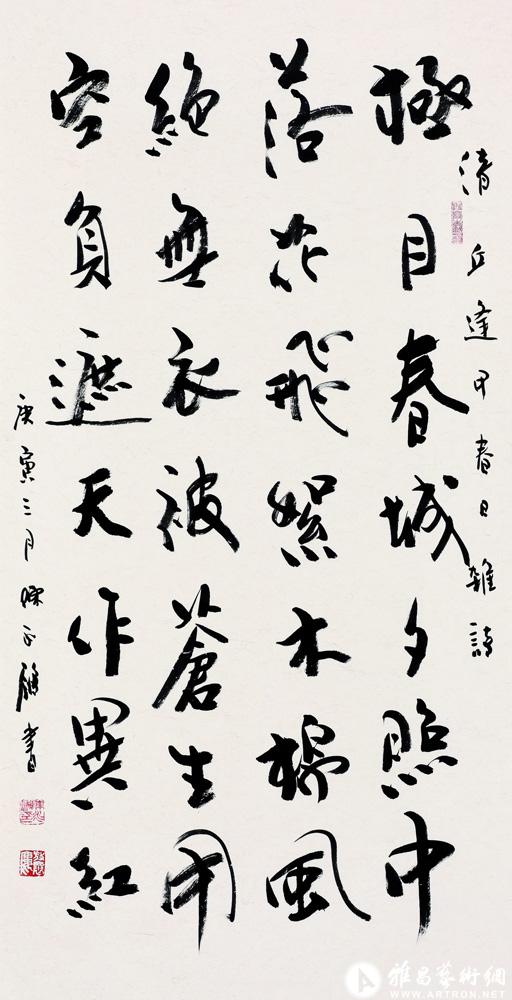 清丘逢甲春日雜詩
極目春城夕照中
落花飛絮木棉風
絕無衣被蒼生用
空負遮天作異紅
庚寅三月 書
雅昌藝術網
WWW.ARTRON.NET